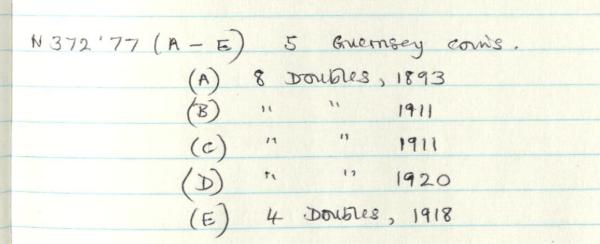 N 372'77 (A - E) 5 Guernsey coins.
(A) 8 Doubles, 1893
(B) " " 1911
(C) " " 1911
(D) " " 1920
(E) 4 Doubles, 1918